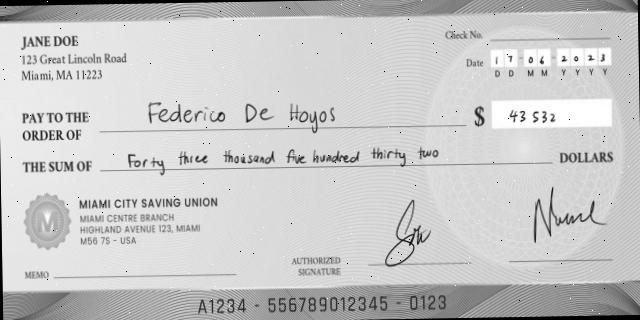 JANE DOE
123 Great Lincoln Road
Miami, MA 11223
Check No.
Date 17-06-2023
D D M M Y Y Y Y
PAY TO THE ORDER OF Federico De Hoyos $ 43 532
THE SUM OF Forty three thousand five hundred thirty two DOLLARS
MIAMI CITY SAVING UNION
MIAMI CENTRE BRANCH
HIGHLAND AVENUE 123, MIAMI
M56 7S - USA
M
MEMO
AUTHORIZED SIGNATURE
A1234 - 556789012345 - 0123